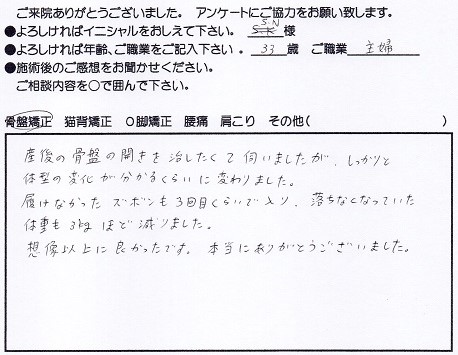 ご来院ありがとうございました。 アンケートにご協力をお願い致します。
●よろしければイニシャルをおしえて下さい。 S.N 様
●よろしければ年齢、ご職業をご記入下さい。 33 歳 ご職業 主婦
●施術後のご感想をお聞かせください。
ご相談内容を〇で囲んで下さい。
骨盤矯正 猫背矯正 O脚矯正 腰痛 肩こり その他( )
産後の骨盤の開きを治したくて伺いましたが、しっかりと
体型の変化が分かるくらいに変わりました。
履けなかったズボンも3回目くらいで入り、落ちなくなっていた
体重も3kgほど減りました。
想像以上に良かったです。本当にありがとうございました。